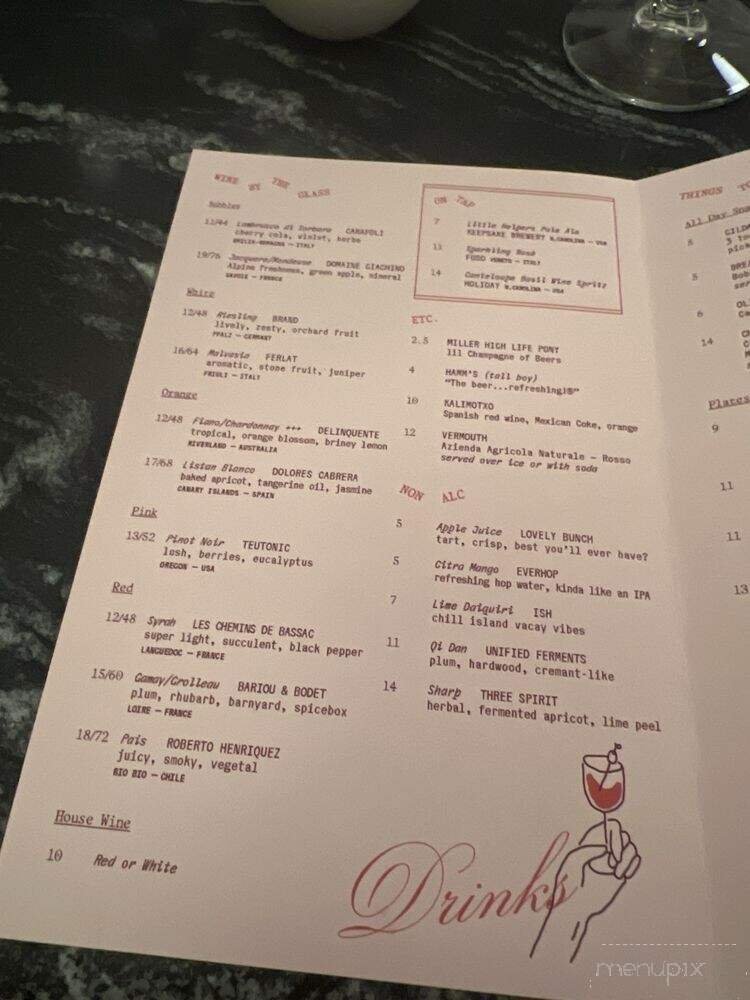 WINE BY THE GLASS
Bubbles
11/44 Lambrusco di Sorbara CAMAFOLI
cherry cola, violet, herbs
EMILIA-ROMAGNA — ITALY
19/76 Jacquere/Mondeuse DOMAINE GIACHINO
Alpine freshness, green apple, mineral
SAVOIE — FRANCE
White
12/48 Riesling BRAND
lively, zesty, orchard fruit
PFALZ — GERMANY
16/64 Malvasia FERLAT
aromatic, stone fruit, juniper
FRIULI — ITALY
Orange
12/48 Fiano/Chardonnay +++ DELINQUENTE
tropical, orange blossom, briney lemon
RIVERLAND — AUSTRALIA
17/68 Listan Blanco DOLORES CABRERA
baked apricot, tangerine oil, jasmine
CANARY ISLANDS — SPAIN
Pink
13/52 Pinot Noir TEUTONIC
lush, berries, eucalyptus
OREGON — USA
Red
12/48 Syrah LES CHEMINS DE BASSAC
super light, succulent, black pepper
LANGUEDOC — FRANCE
15/60 Gamay/Grolleau BARIOU & BODET
plum, rhubarb, barnyard, spicebox
LOIRE — FRANCE
18/72 Pais ROBERTO HENRIQUEZ
juicy, smoky, vegetal
BIO BIO — CHILE
House Wine
10 Red or White
ON TAP
7 Little Helpers Pale Ale
KEEPSAKE BREWERY N.CAROLINA — USA
11 Sparkling Rosé
FOOD VENETO — ITALY
14 Canteloupe Basil Wine Spritz
HOLIDAY N.CAROLINA — USA
ETC.
2.5 MILLER HIGH LIFE PONY
lil Champagne of Beers
4 HAMM'S (tall boy)
"The beer...refreshing!®"
10 KALIMOTXO
Spanish red wine, Mexican Coke, orange
12 VERMOUTH
Azienda Agricola Naturale — Rosso
served over ice or with soda
NON ALC
5 Apple Juice LOVELY BUNCH
tart, crisp, best you'll ever have?
5 Citra Mango EVERHOP
refreshing hop water, kinda like an IPA
7 Lime Daiquiri ISH
chill island vacay vibes
11 Qi Dan UNIFIED FERMENTS
plum, hardwood, cremant-like
14 Sharp THREE SPIRIT
herbal, fermented apricot, lime peel
Drinks
THINGS
All Day
8
5
6
14
Plates
9
11
11
13
menupix